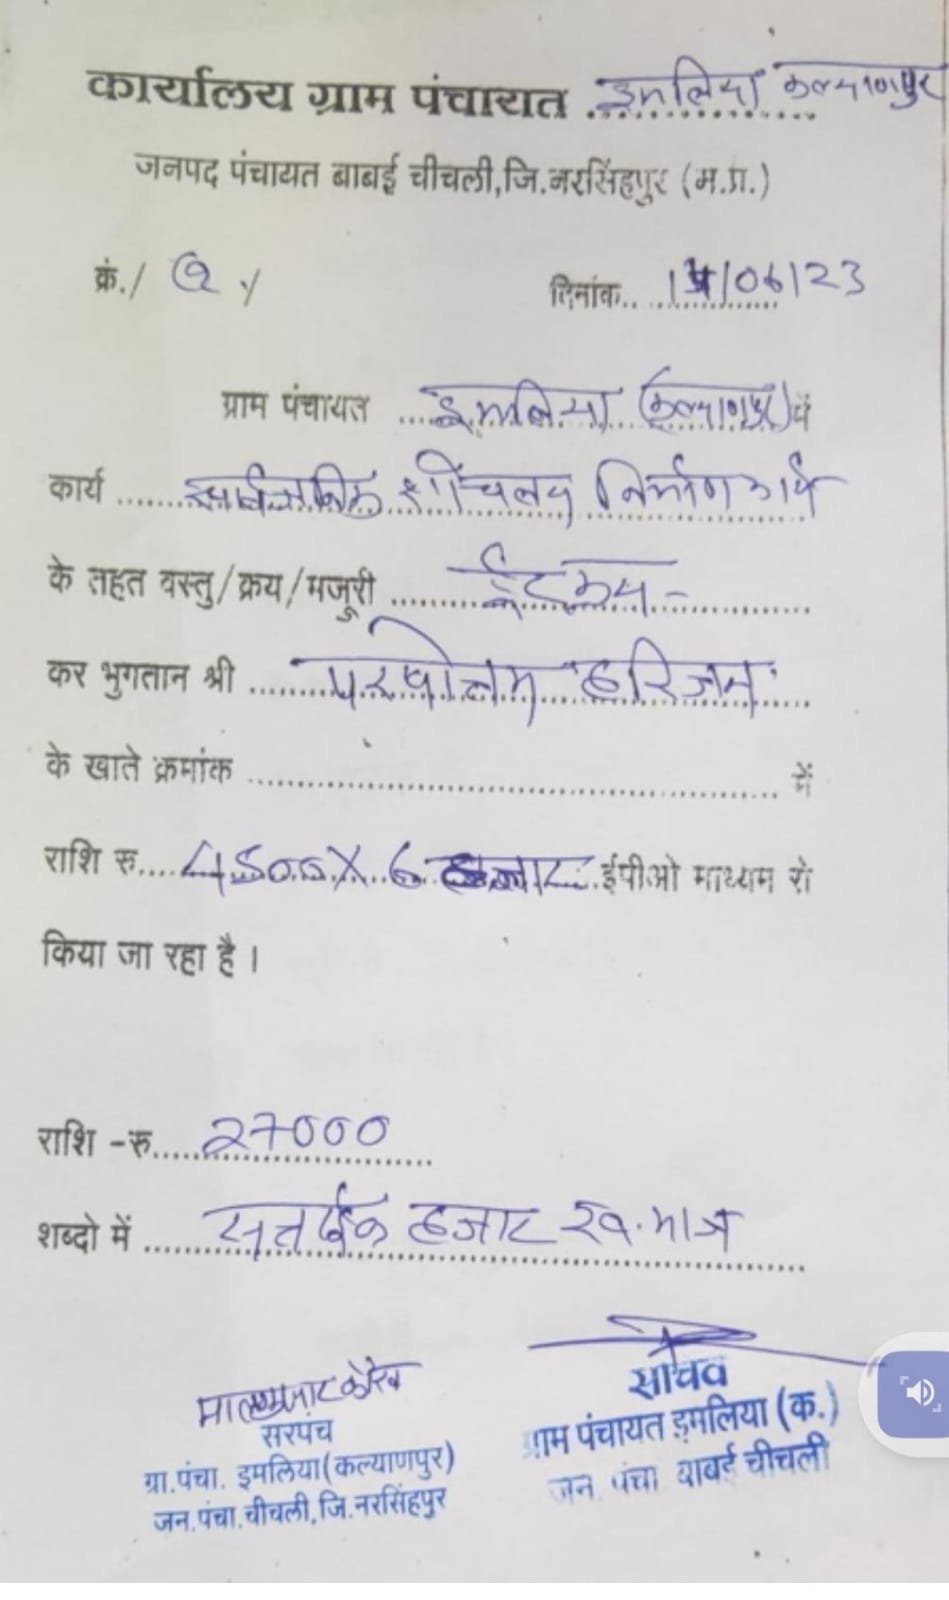 कार्यालय ग्राम पंचायत इमलिया कल्याणपुर
जनपद पंचायत बाबई चीचली,जि.नरसिंहपुर (म.प्र.)
क्रं./ Q / दिनांक.. 14/06/23
ग्राम पंचायत ...इमलिया (कल्याणपुर) में
कार्य ......सार्वजनिक शौचलय निर्माण कार्य
के तहत वस्तु/क्रय/मजुरी ......ईट क्रय -
कर भुगतान श्री ......परषोत्तम हरिजन
के खाते क्रमांक ............ में
राशि रु....4500X 6 हजार ईपीओ माध्यम से
किया जा रहा है ।
राशि -रु....27000
शब्दो में ......हजार रू. मात्र
सरपंच
ग्रा.पंचा. इमलिया(कल्याणपुर)
जन.पंचा.चीचली,जि.नरसिंहपुर
सचिव
ग्राम पंचायत इमलिया (क.)
जन. पंचा बाबई चीचली